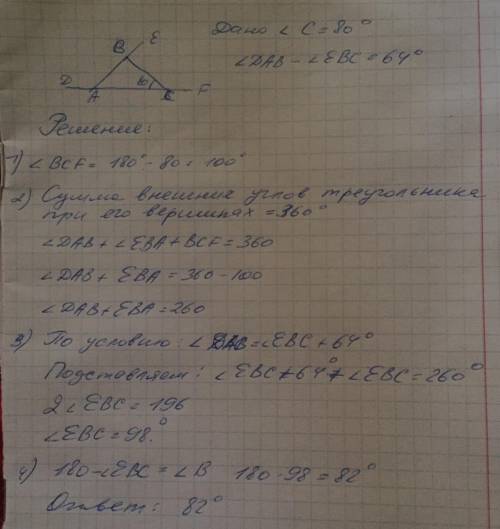 Дано ∠ C = 80°
∠DAB - ∠EBC = 64°
B E
D A C F
Решение:
1) ∠BCF = 180° - 80 = 100°
2) Сумма внешние углов треугольника
при его вершинах = 360°
∠DAB + ∠EBA + BCF = 360
∠DAB + EBA = 360 - 100
∠DAB + EBA = 260
3) По условию: ∠DAB = ∠EBC + 64°
Подставляем: ∠EBC + 64° + ∠EBC = 260°
2 ∠EBC = 196
∠EBC = 98°
4) 180 - ∠EBC = ∠B 180 - 98 = 82°
Ответ: 82°